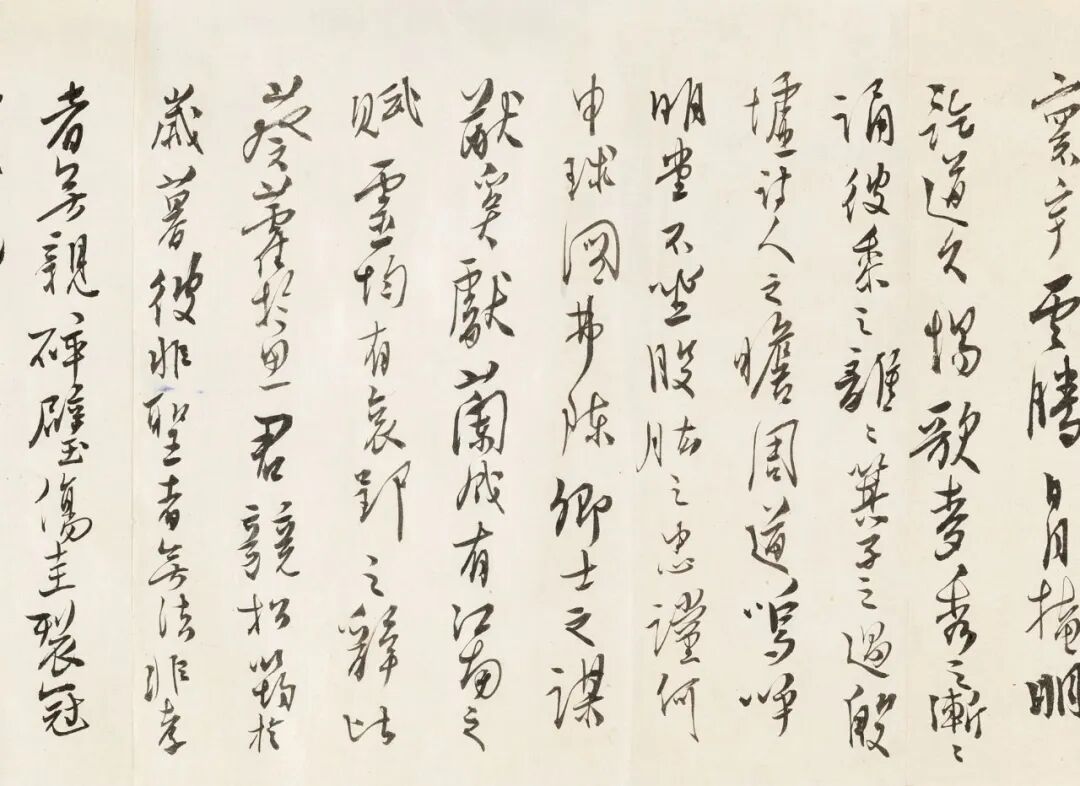 寰宇雲騰日月掩明
道久惕歌麥秀之漸〻
誦彼黍之離〻箕子之過殷
墟詩人之瞻周道嗚呼
明堂不坐股肱之忠謹何
申球圖弗陳卿士之謀
猷奚獻蘭成有江南之
賦靈均有哀郢之辭比
葵藿於思君競松筠於
歲暮彼非聖者無法非孝
者無親碎璧傷圭裂冠